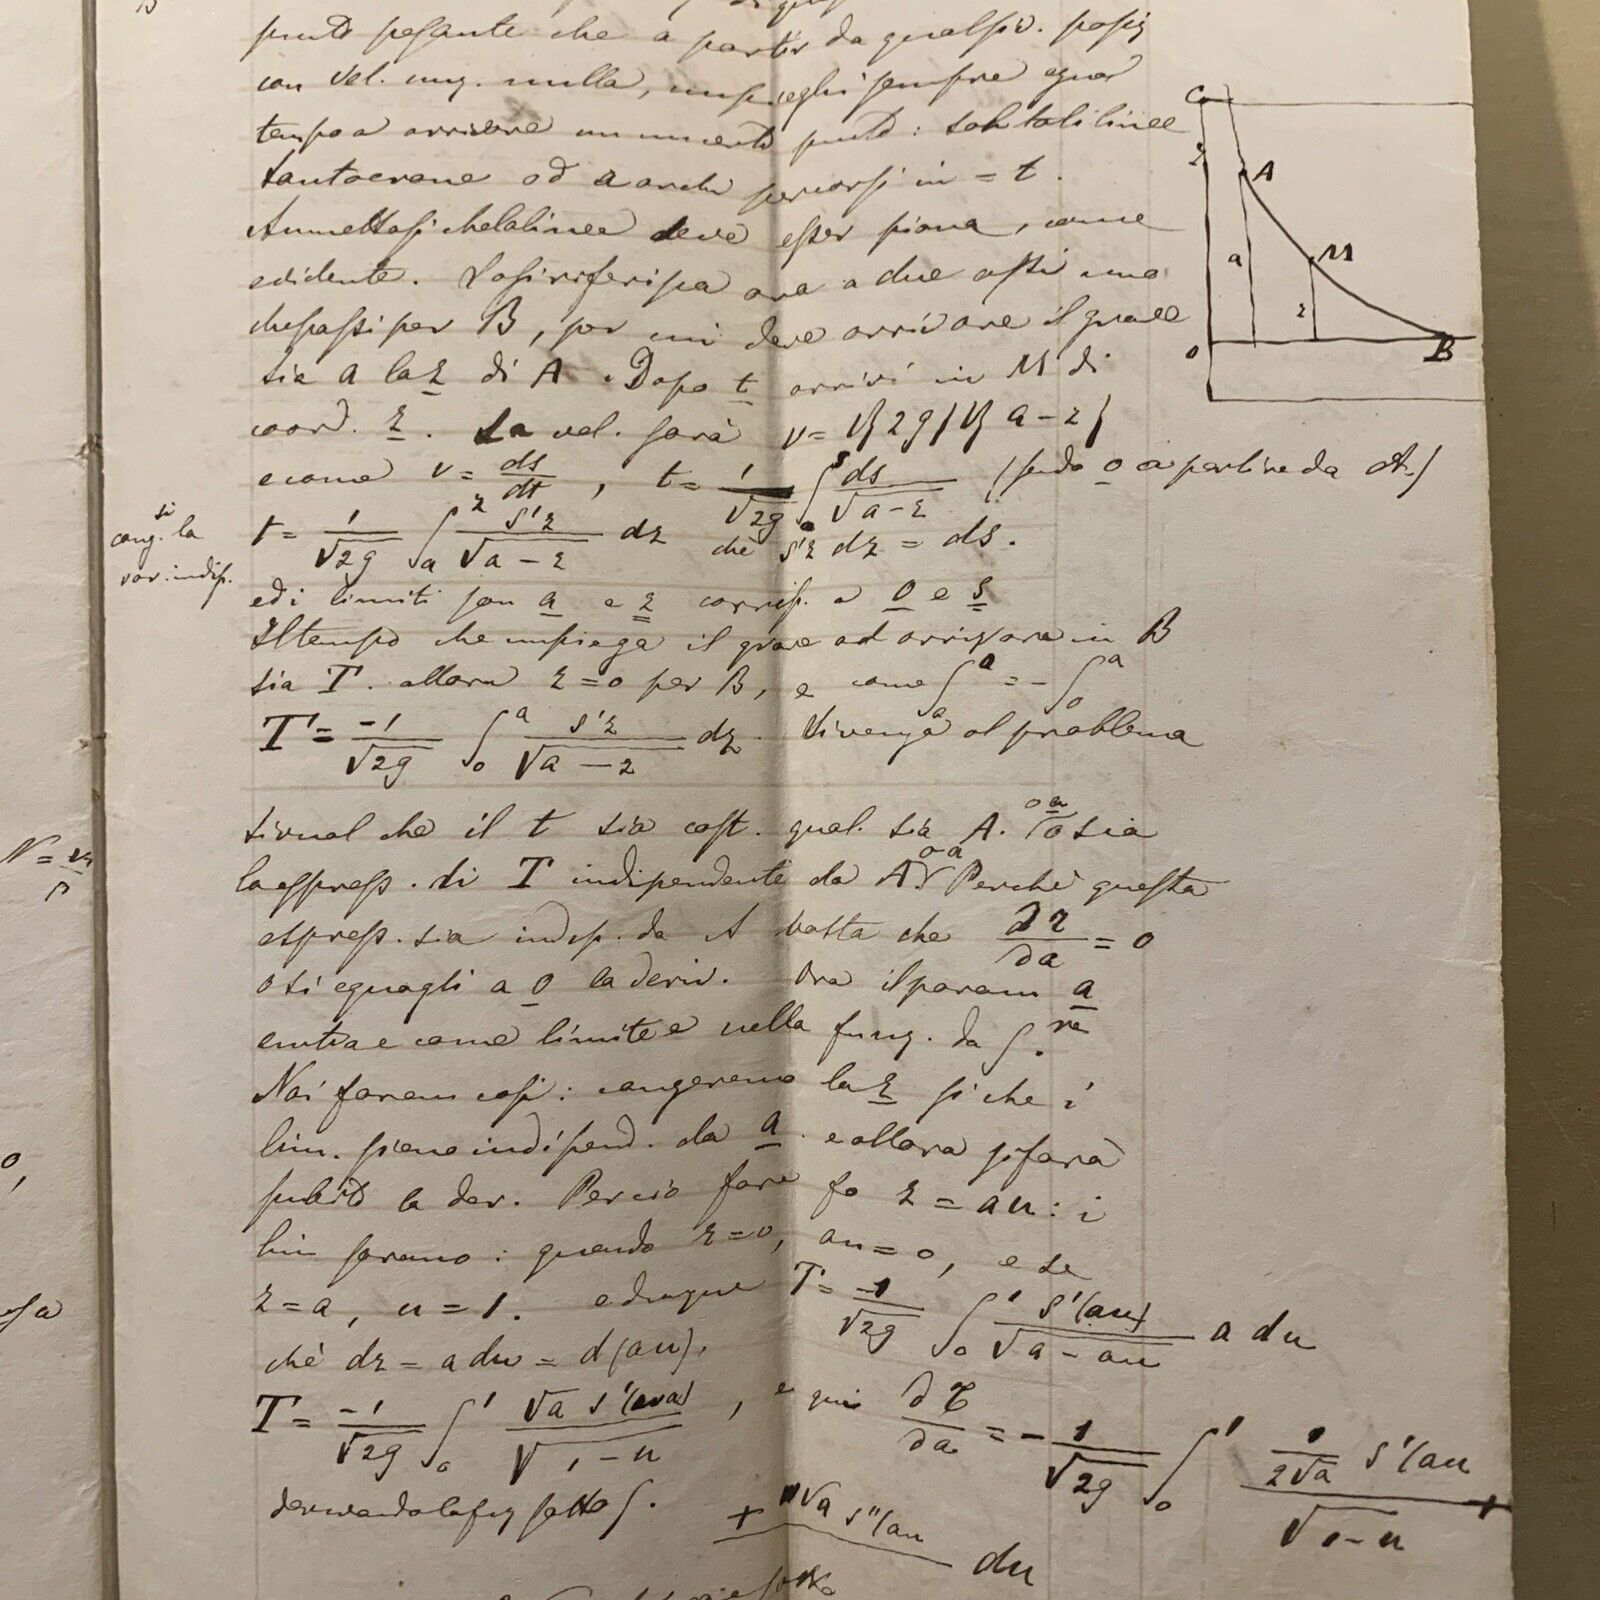 punto pesante che a partir da qualsiv. posiz
con vel. iniz. nulla, impieghi sempre egual
tempo a arrivare in un certo punto: tali linee
tautocrone od a archi percorsi in = t.
Ammettasi che la linea deve esser piana, come
evidente. La si riferisca ora a due assi uno
che passi per B, per cui deve arrivare il grave
sia a la z di A. Dopo t arrivi in M di
coord. z. La vel. sarà v = √{2g}√{a-z}
e come v = ds/dt, t = 1/√2g ∫ₒˢ ds/√a-z (sendo o a partire da A.)
si
cang. la
var. indip.
t = 1/√2g ∫ₐᶻ s'z/√a-z dz chè s'z dz = ds.
ed i limiti son a e z corrisp. a 0 e s
Il tempo che impiega il grave ad arrivare in B
sia T. allora z=0 per B, e come ∫ₐ⁰ = -∫₀ᵃ
T = -1/√2g ∫₀ᵃ s'z/√a-z dz. Si venga al problema
Si vuol che il t sia cost. qual. sia A. o a o sia
la espress. di T indipendente da A. o a Perchè questa
espress. sia indip. da A basta che ∂T/∂a = 0
o si eguagli a 0 la deriv. Ora il param a
entra e come limite e nella funz. da ∫.re
Noi farem così: cangeremo la z sì che i
lim. sieno indipend. da a. e allora si farà
subito la der. Perciò fare fo z = au: i
lim saranno: quando z=0, au=0, e se
z=a, u=1. e dunque T = -1/√2g ∫₀¹ s'(au)/√a-au a du
chè dz = a du = d(au).
T = -1/√2g ∫₀¹ √a s'(au)/√1-u, e qui ∂T/∂a = -1/√2g ∫₀¹ 1/2√a s'(au)/√1-u
derivando la fz sotto ∫. + u√a s''(au) du
C
z
A
a
M
z
O
B
N =
0,